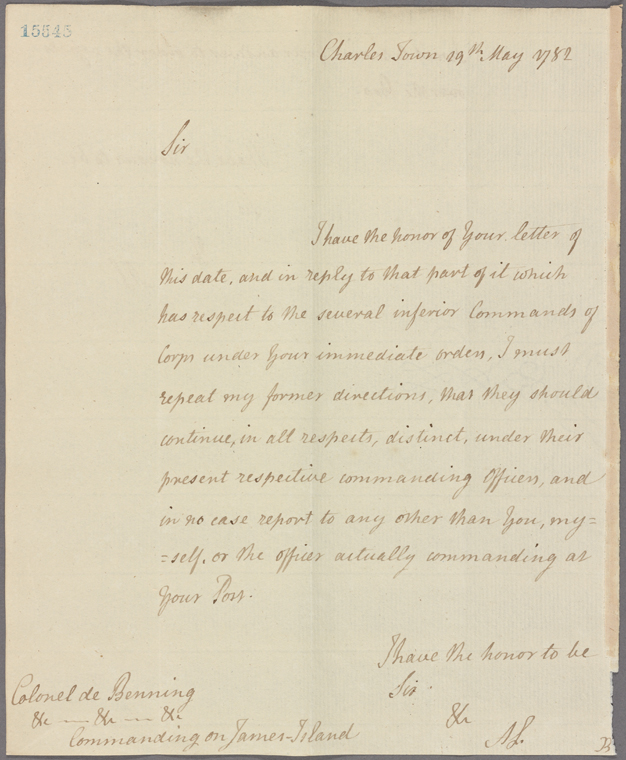 15545
Charles Town 19th May 1782
Sir
I have the honor of Your letter of
this date, and in reply to that part of it which
has respect to the several inferior Commands of
Corps under Your immediate orders, I must
repeat my former directions, that they should
continue, in all respects, distinct, under their
present respective commanding Officers, and
in no case report to any other than You, my=
=self, or the officer actually commanding at
Your Post.
I have the honor to be
Sir
&c
AL.
Colonel de Benning
&c — &c — &c
Commanding on James-Island